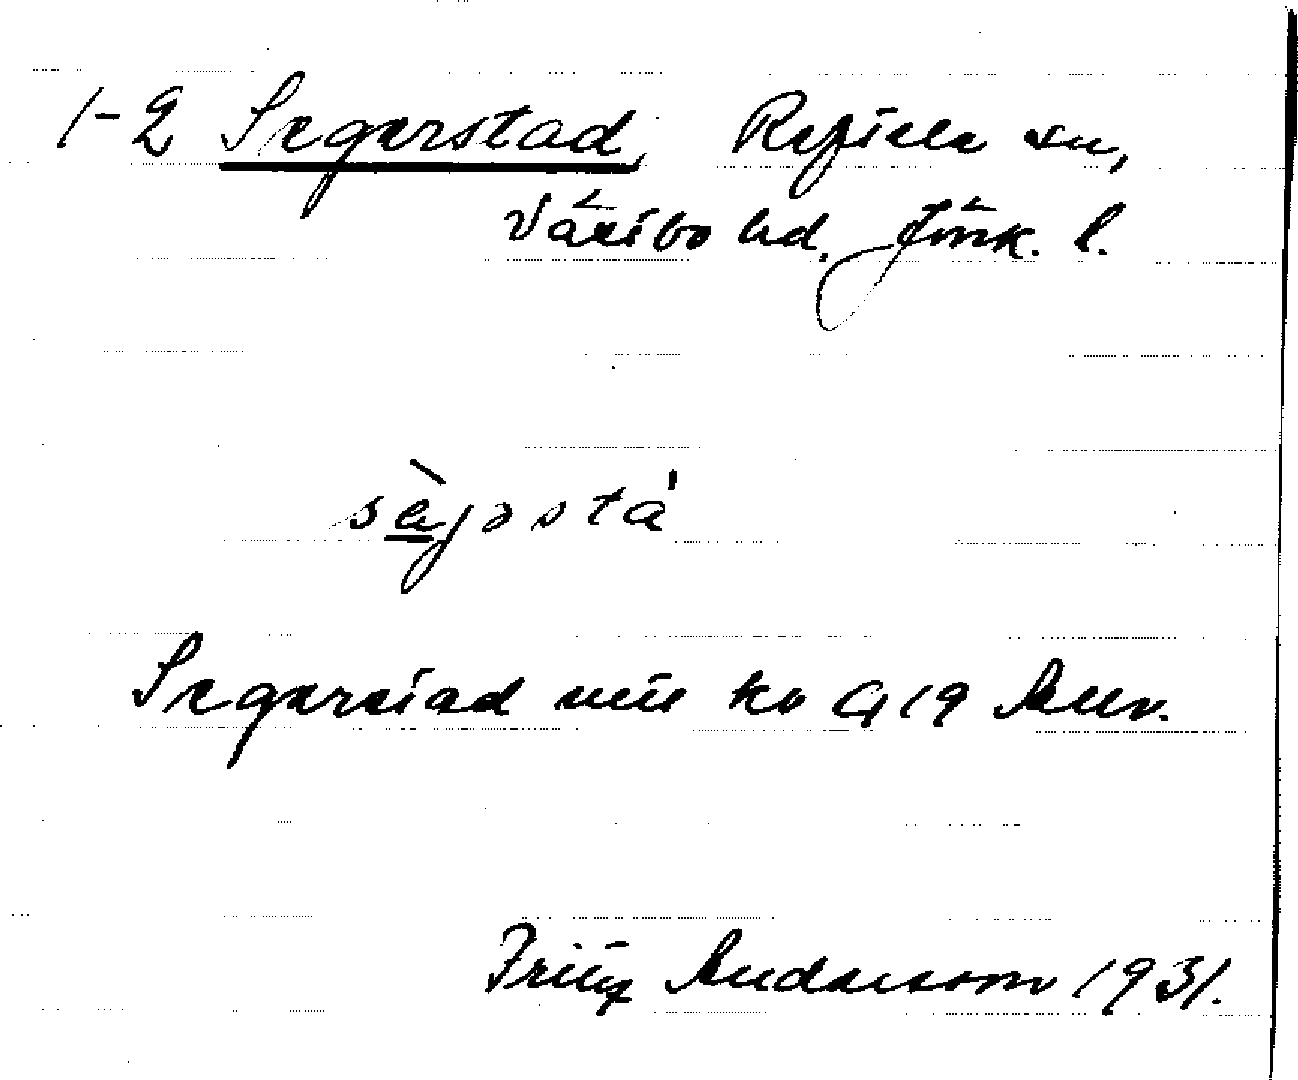 1-2 Segerstad, Reftele sn,
Västbo hd, Jönk. l.
sàjəstá
Segerstad
Fritz Andersson 1931.